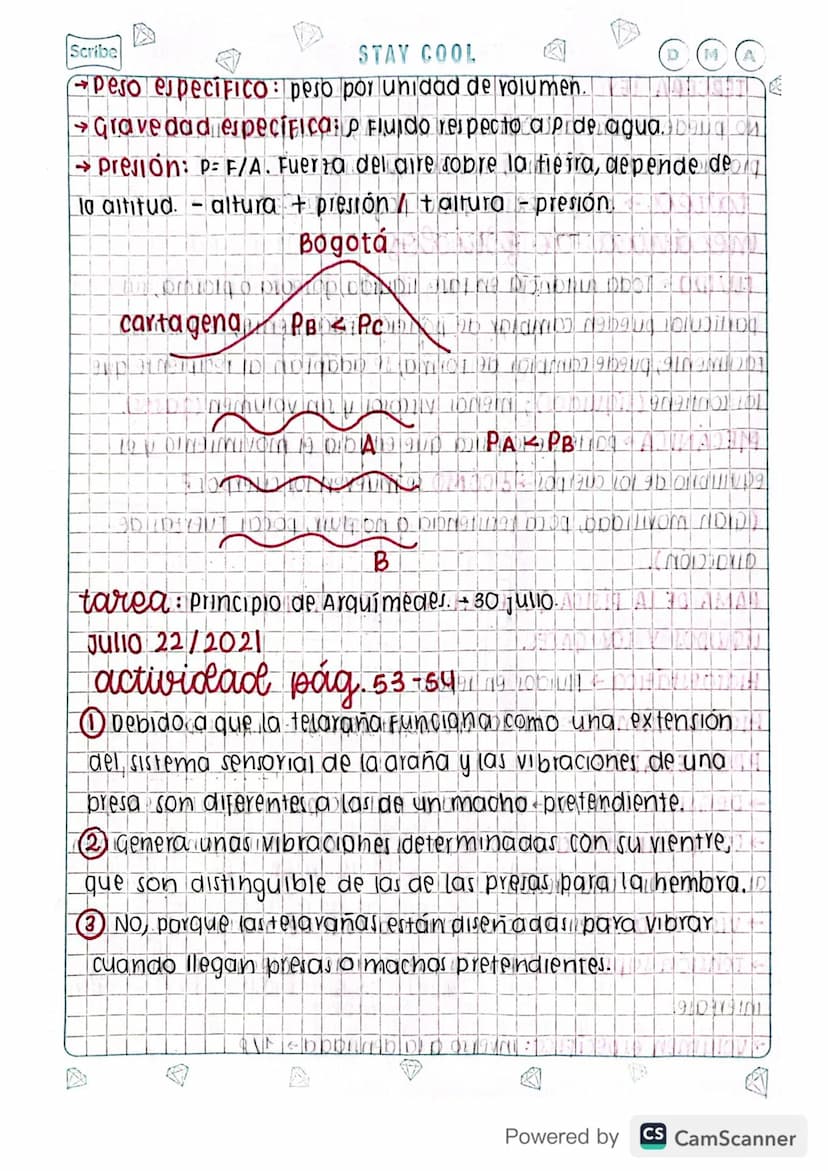 Scribe
STAY COOL
D M A
→ Peso específico: peso por unidad de volumen.
→ Gravedad específica: ρ Fluido respecto a ρ de agua.
→ Presión: P= F/A. Fuerza del aire sobre la tierra, depende de
la altitud. - altura + presión / + altura - presión.
Bogotá
cartagena PB < PC
A PA < PB
B
tarea: Principio de Arquímedes. → 30 julio.
Julio 22/2021
actividad pág. 53-54
① Debido a que la telaraña funciona como una extensión
del sistema sensorial de la araña y las vibraciones de una
presa son diferentes a las de un macho pretendiente.
② Genera unas vibraciones determinadas con su vientre,
que son distinguible de las de las presas para la hembra.
③ No, porque las telarañas están diseñadas para vibrar
cuando llegan presas o machos pretendientes.
Powered by CS CamScanner